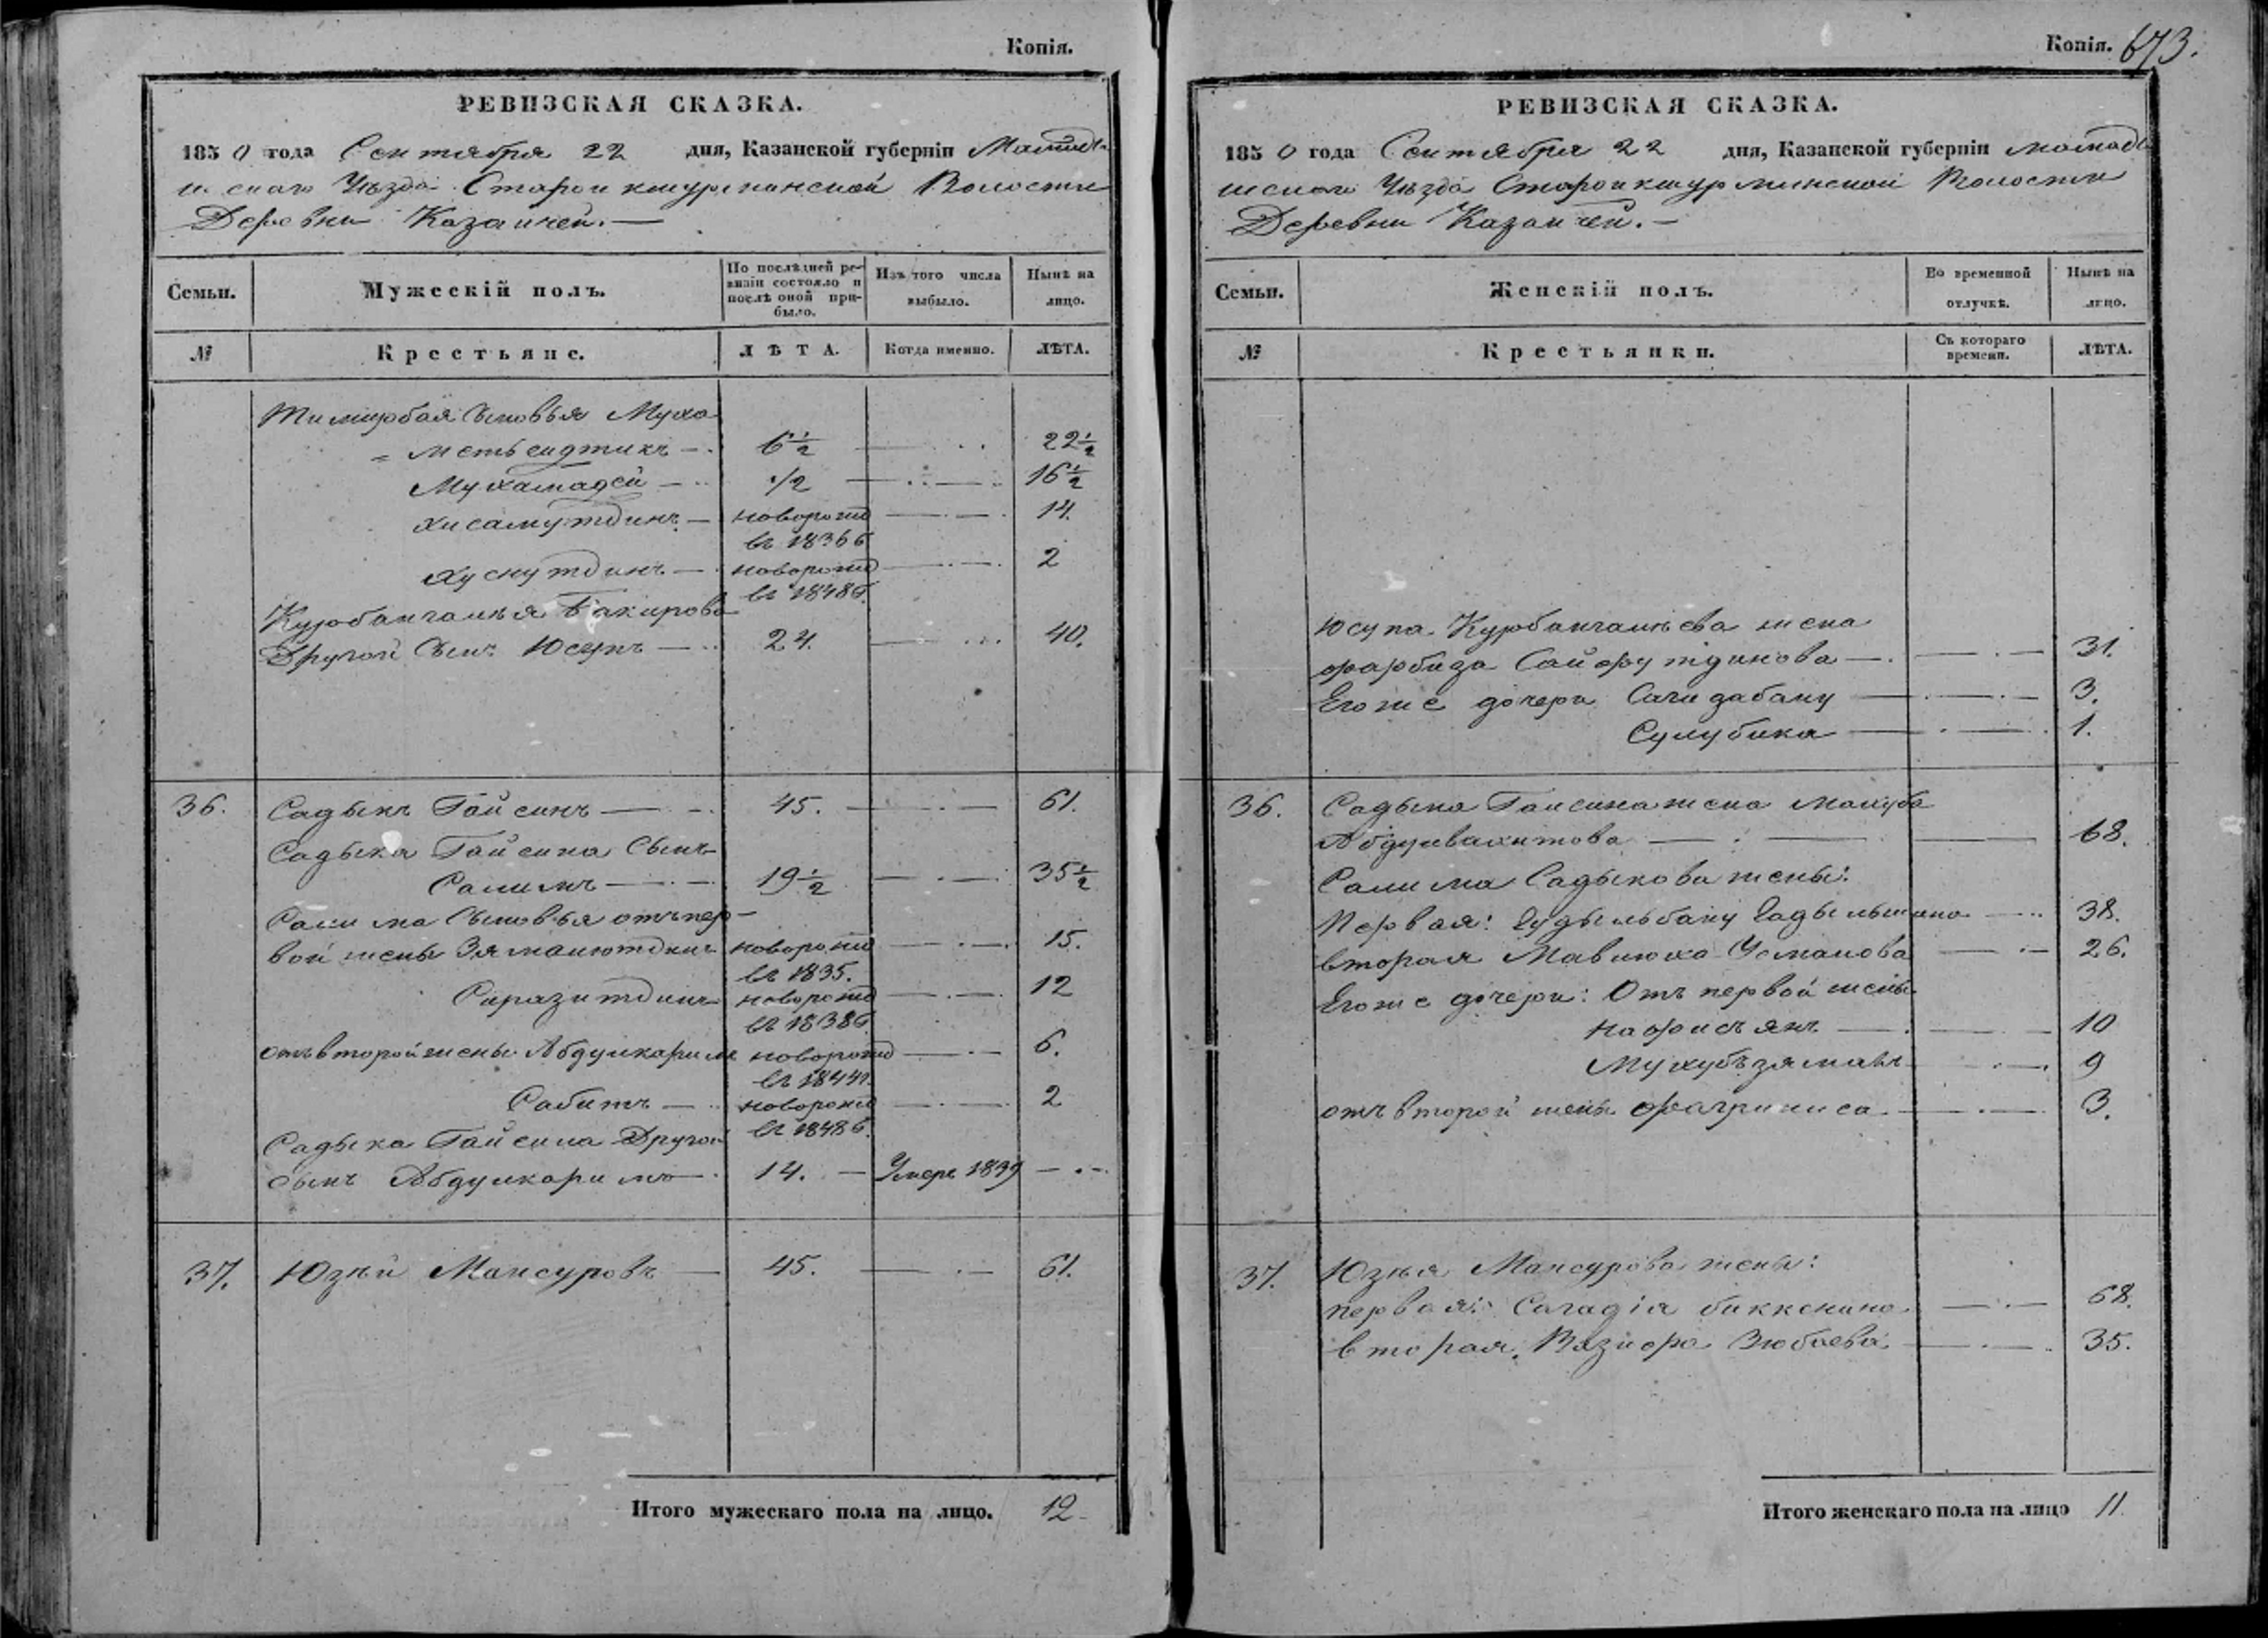 Копія.
РЕВИЗСКАЯ СКАЗКА.
1850 года Сентября 22 дня, Казанской губерніи Мамады-
шскаго Уѣзда Староикшурминской Волости
Деревни Казаичей.—
Семьи.
Мужескій полъ.
По послѣдней ре-
визіи состояло и
послѣ оной при-
было.
Изъ того числа
выбыло.
Нынѣ на
лицо.
№
Крестьяне.
ЛѢТА.
Когда именно.
ЛѢТА.
Тимирбая Сыновья Муха
= метьсидтикъ — 6 1/2 — 22 1/2
Мухамадей — 1/2 — 16 1/2
Хисамутдинъ — новорожд — 14.
въ 1836 г
Хуснутдинъ — новорожд — 2
въ 1848 г.
Курбангалѣя Бакирова
Другой Сынъ Юсупъ — 24. — 40.
36. Садыкъ Гайсинъ — 45. — 61.
Садыка Гайсина Сынъ
Салимъ — 19 1/2 — 35 1/2
Салима Сыновья отъ пер-
вой жены Зяманютдинъ новорожд — 15.
въ 1835.
Сиразитдинъ новорожд — 12
въ 1838 г
отъ второй жены Абдулкарим новорожд — 6.
въ 1844 г.
Сабитъ — новорожд — 2
въ 1848 г.
Садыка Гайсина Другой
сынъ Абдулкаримъ — 14. — Умеръ 1839 —
37. Юзѣй Мансуровъ — 45. — 61.
Итого мужескаго пола на лицо. 12
Копія. 673.
РЕВИЗСКАЯ СКАЗКА.
1850 года Сентября 22 дня, Казанской губерніи Мамады
шскаго Уѣзда Староикшурминской Волости
Деревни Казаичей.—
Семьи.
Женскій полъ.
Во временной
отлучкѣ.
Нынѣ на
лицо.
№
Крестьянки.
Съ котораго
времени.
ЛѢТА.
Юсупа Курбангалѣева жена
Фарбиза Сайфутдинова — 31.
Его же дочери Сагидабану — 3.
Сулубика — 1.
36. Садыка Гайсина жена Махуба
Абдулвахитова — 68.
Салима Садыкова жены:
Первая: Гудыльбану Гадыльшина — 38.
вторая Мавлюха Усманова — 26.
Его же дочери: Отъ первой жены
Нафисъянъ — 10
Мухубъзяманъ — 9
отъ второй жены Фахриниса — 3.
37. Юзѣя Мансурова жены:
первая: Сагадія биккенина — 68.
вторая, Вазифа Зюбаева — 35.
Итого женскаго пола на лицо 11